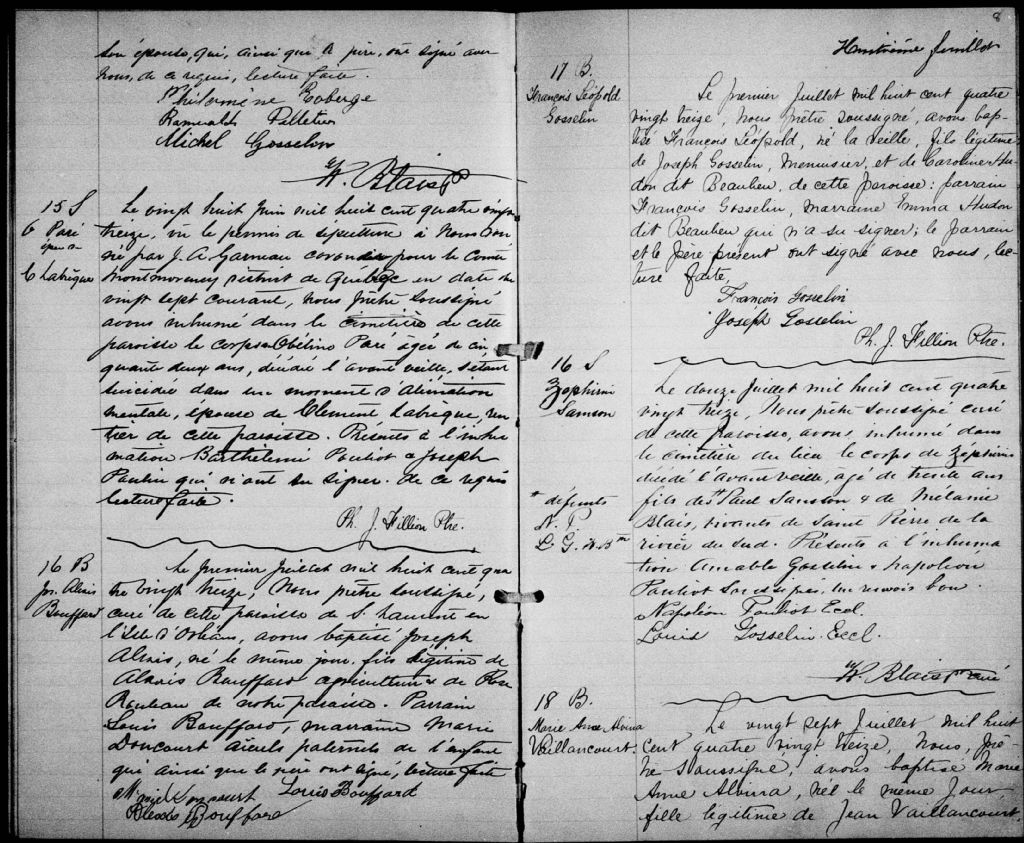 son épouse, qui, ainsi que le père, ont signé avec
nous, de ce requis, lecture faite.
Philomène Roberge
Romuald Pelletier
Michel Gosselin
W. Blais Ptre
15 S
O Paré
épouse
C Labrèque
Le vingt huit Juin mil huit cent quatre vingt
treize, vu le permis de sépulture à Nous don
né par J. A. Garneau coroner pour le Comté
Montmorency district de Québec en date du
vingt sept courant, Nous prêtre soussigné
avons inhumé dans le cimetière de cette
paroisse le corps Obéline Paré agée de cin
quante deux ans, décédée l'avant veille, s'étant
suicidée dans un moment d'aliénation
mentale, épouse de Clement Labreque, ren
tier de cette paroisse. Présents à l'inhu
mation Barthelemi Pouliot & Joseph
Paulin qui n'ont su signer. de ce requis
lecture faite.
Ph. J. Fillion Ptre.
16 B
Jos. Alexis
Bouffard
Le premier Juillet mil huit cent qua
tre vingt treize, Nous prêtre soussigné,
curé de cette paroisse de St. Laurent en
l'Isle d'Orléans, avons baptisé Joseph
Alexis, né le même jour, fils légitime de
Alexis Bouffard agriculteur & de Rose
Rouleau de notre paroisse. Parrain
Louis Bouffard, marraine Marie
Doucourt aïeuls paternels de l'enfant
qui ainsi que le père ont signé, lecture faite
Louis Bouffard
Alexis Bouffard
8
Huitième feuillet
17 B.
François Léopold
Gosselin
Le premier Juillet mil huit cent quatre
vingt treize, Nous prêtre soussigné, avons bap-
tisé François Léopold, né la veille, fils légitime
de Joseph Gosselin, menuisier, et de Caroline Hu-
don dit Beaulieu, de cette paroisse: parrain
François Gosselin, marraine Emma Hudon
dit Beaulieu qui n'a su signer; le parrain
et le père présent ont signé avec nous, lec-
ture faite,
François Gosselin
Joseph Gosselin
Ph. J. Fillion Ptre.
16 S
Zephirin
Samson
Le douze Juillet mil huit cent quatre
vingt treize, Nous prêtre soussigné curé
de cette paroisse, avons inhumé dans
le cimetière du lieu le corps de Zéphirin
décédé l'avant veille, agé de trente ans
fils de Paul Samson & de Mélanie
Blais, vivants de Saint Pierre de la
rivière du Sud. Présents à l'inhuma
tion Amable Gosselin & Napoléon
Pouliot soussignés, un renvoi bon.
Napoléon Pouliot Eccl.
Louis Gosselin. Eccl.
W. Blais Ptre curé
* défunts
N. P.
L. G. W. B Ptre
18 B.
Marie Anne Alvina
Vaillancourt.
Le vingt sept Juillet mil huit
cent quatre vingt treize, Nous, prê-
tre soussigné, avons baptisé Marie
Anne Alvina, née le même Jour,
fille légitime de Jean Vaillancourt,